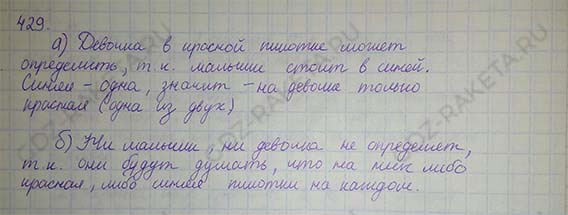 429.
а) Девочка в красной пилотке может
определить, т.к. мальчик стоит в синей.
Синяя - одна, значит - на девочке только
красная (одна из двух)
б) Ни мальчик, ни девочка не определят,
т.к. они будут думать, что на них либо
красная, либо синяя пилотки на каждом.
GDZ-RAKETA.RU